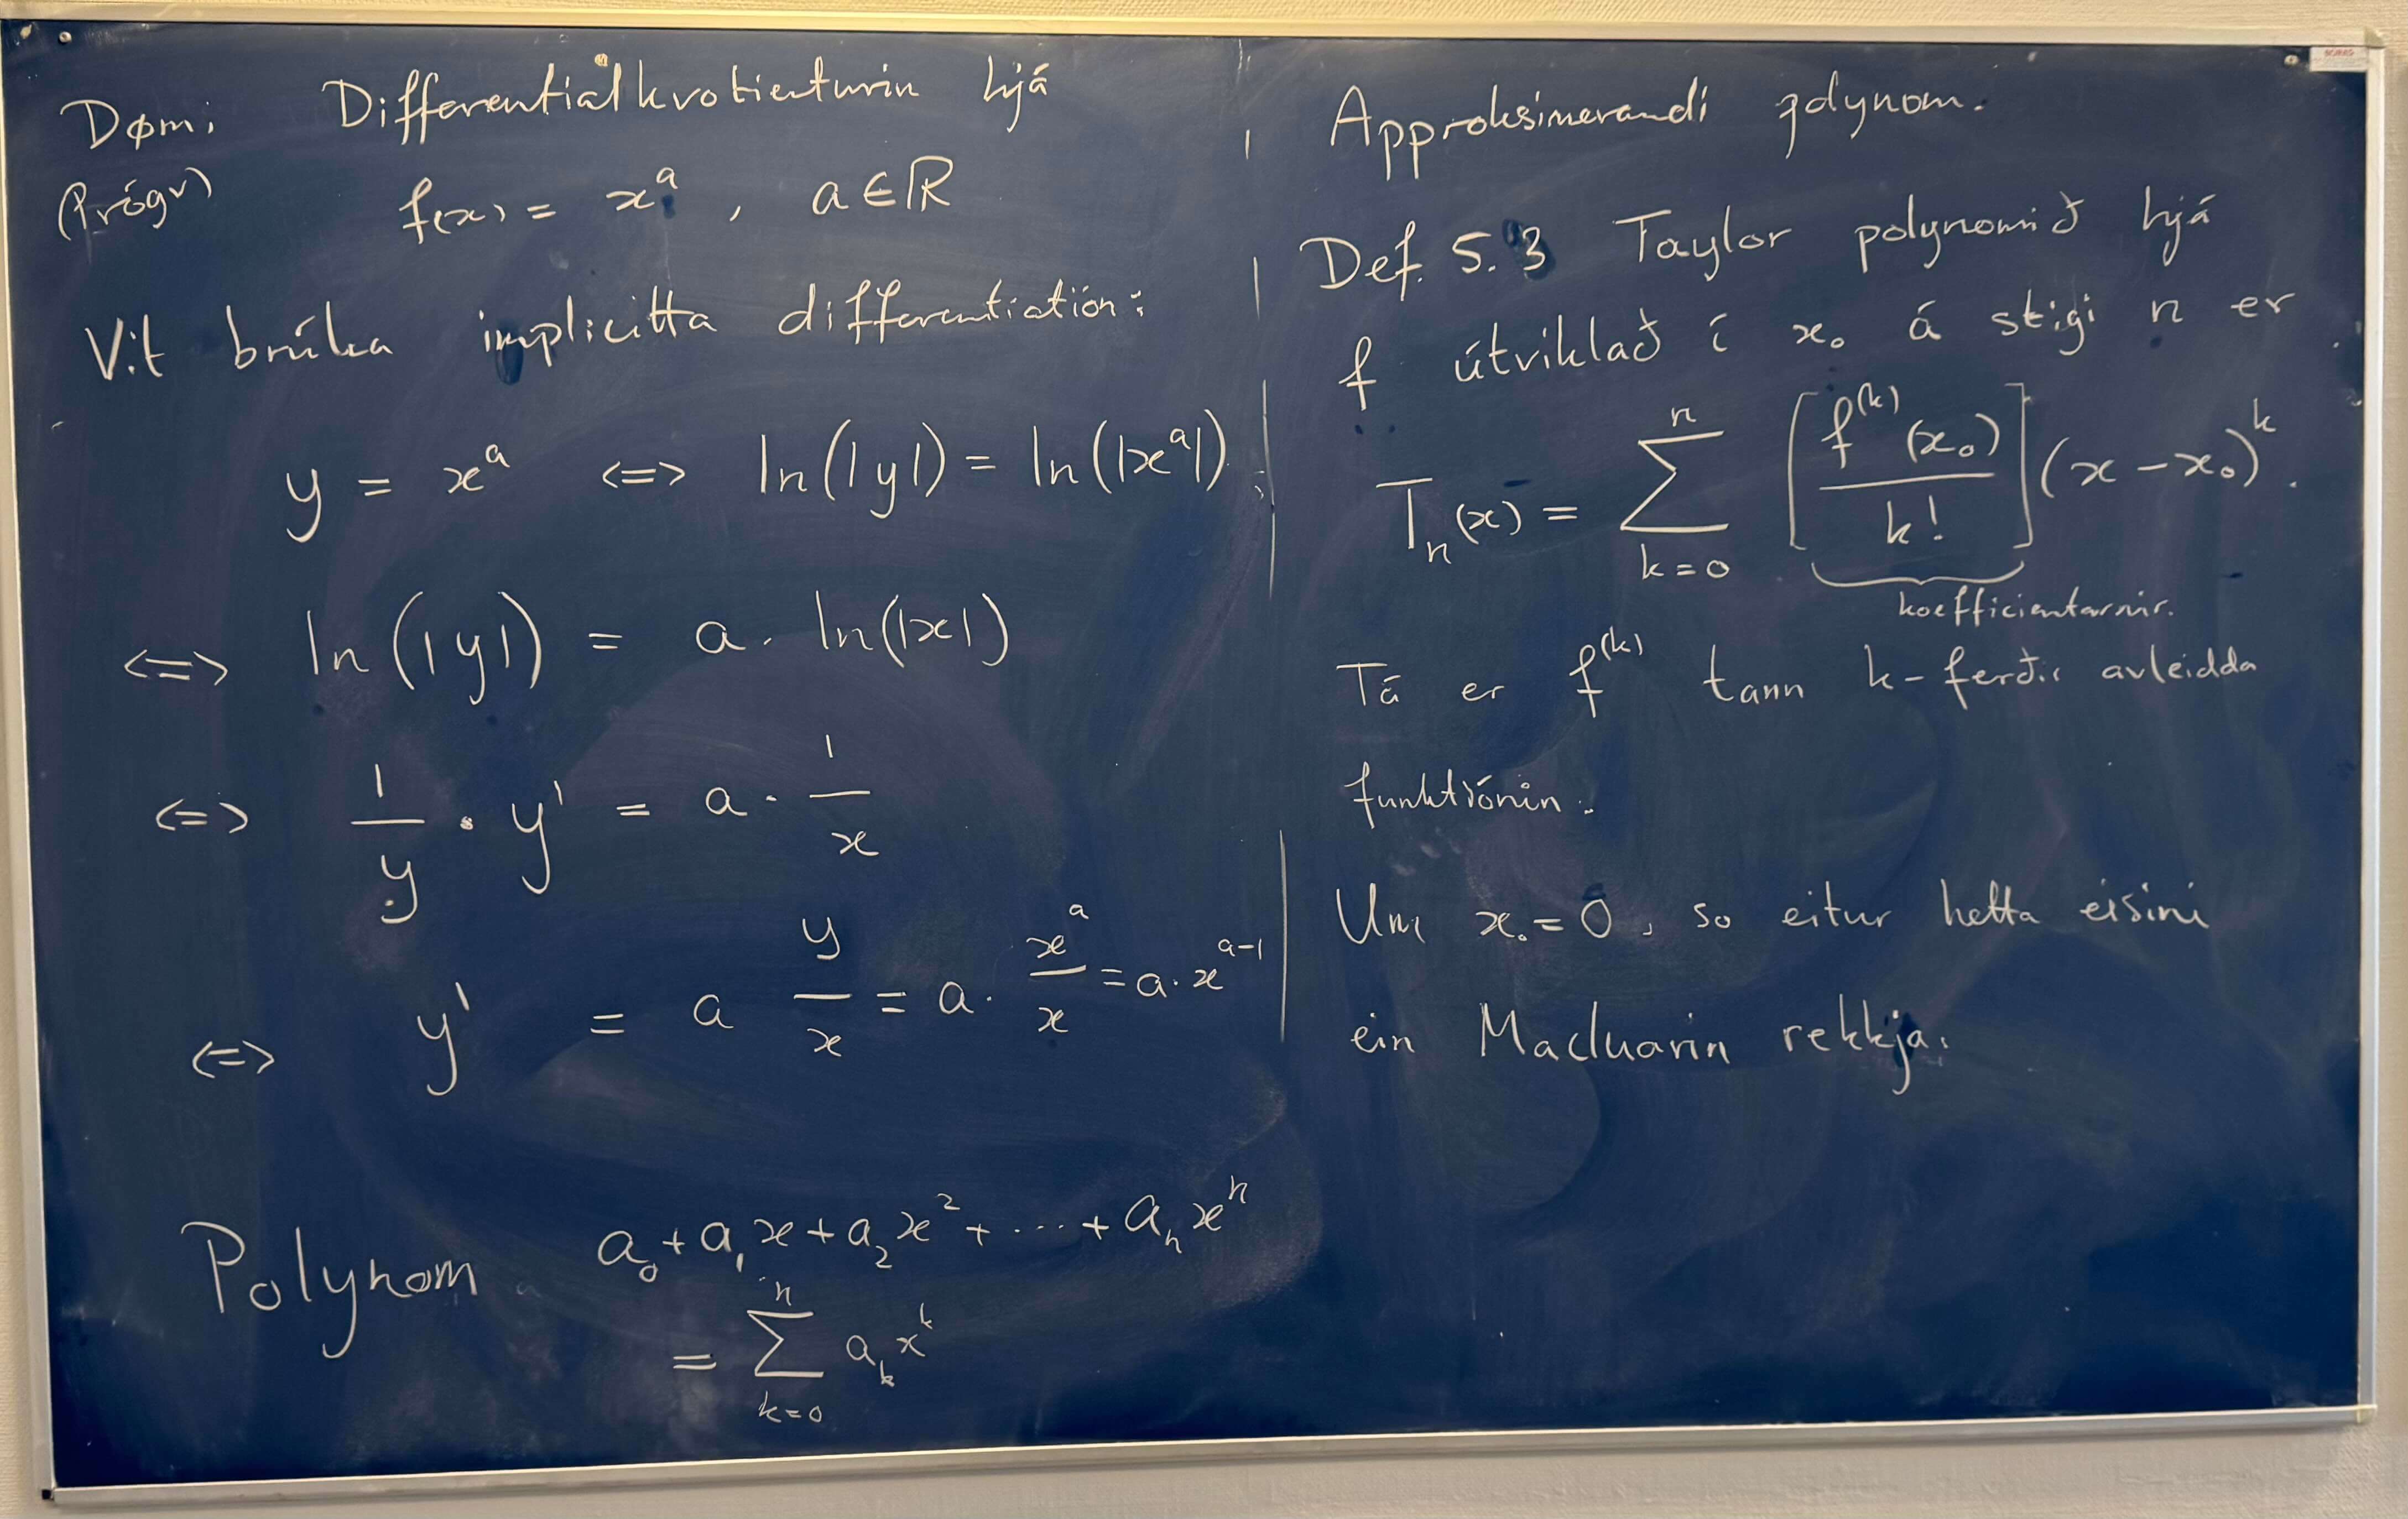 Dømi Differentialkvotienturin hjá
(Prógv) f(x) = x^a , a ∈ ℝ
Vit brúka implicitta differentiatión:
y = x^a <=> ln(|y|) = ln(|x^a|)
<=> ln(|y|) = a · ln(|x|)
<=> 1/y · y' = a · 1/x
<=> y' = a y/x = a · x^a/x = a · x^(a-1)
Polynom a₀ + a₁x + a₂x² + ··· + aₙxⁿ
= Σ_{k=0}^{n} a_k x^k
Approksimerandi polynom.
Def. 5.3 Taylor polynomið hjá
f útviklað í x₀ á stigi n er
Tₙ(x) = Σ_{k=0}^{n} [f^(k)(x₀)/k!] (x - x₀)^k.
koefficientarnir.
Tá er f^(k) tann k-ferða avleidda
funktiónin.
Um x₀ = 0, so eitur hetta eisini
ein Macluarin rekkja.